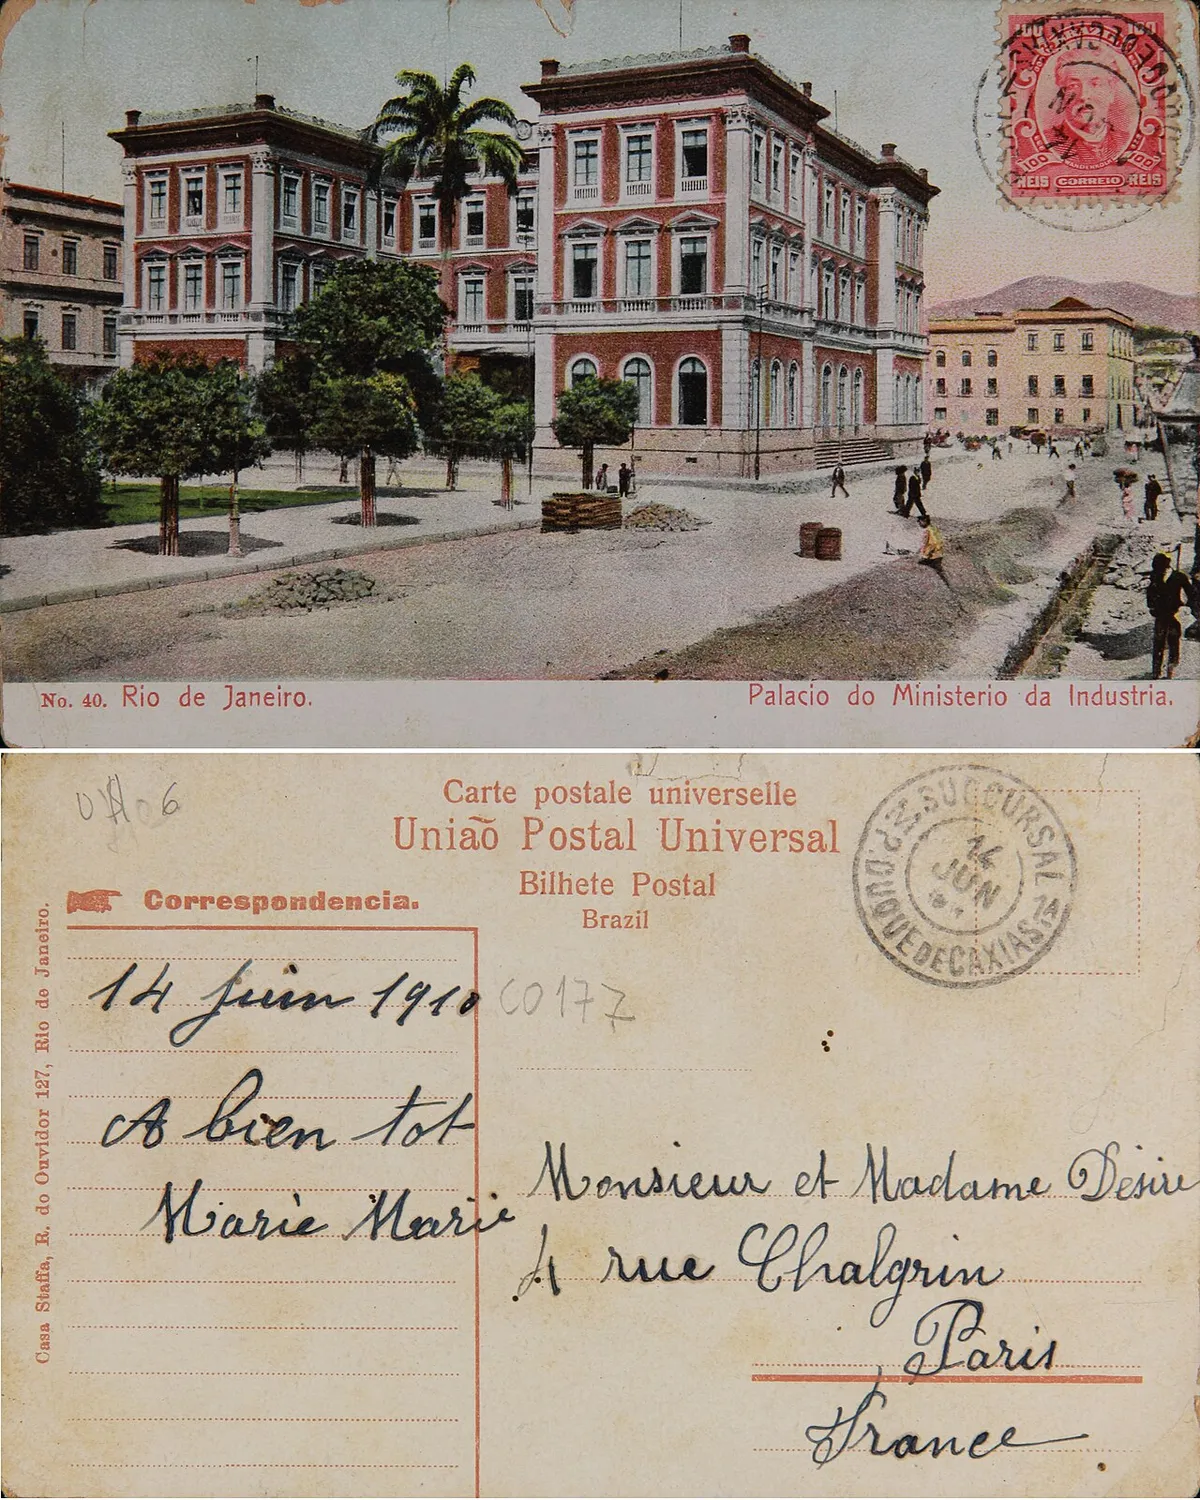 100 100
100 100
REIS CORREIO REIS
No. 40. Rio de Janeiro.
Palacio do Ministerio da Industria.
Carte postale universelle
União Postal Universal
Bilhete Postal
Brazil
Correspondencia.
SUCCURSAL
14
JUN
DUQUE DE CAXIAS
Casa Staffa, R. do Ouvidor 127, Rio de Janeiro.
14 juin 1910
CO177
A bien tot
Marie Marie
Monsieur et Madame Désiré
4 rue Chalgrin
Paris
France